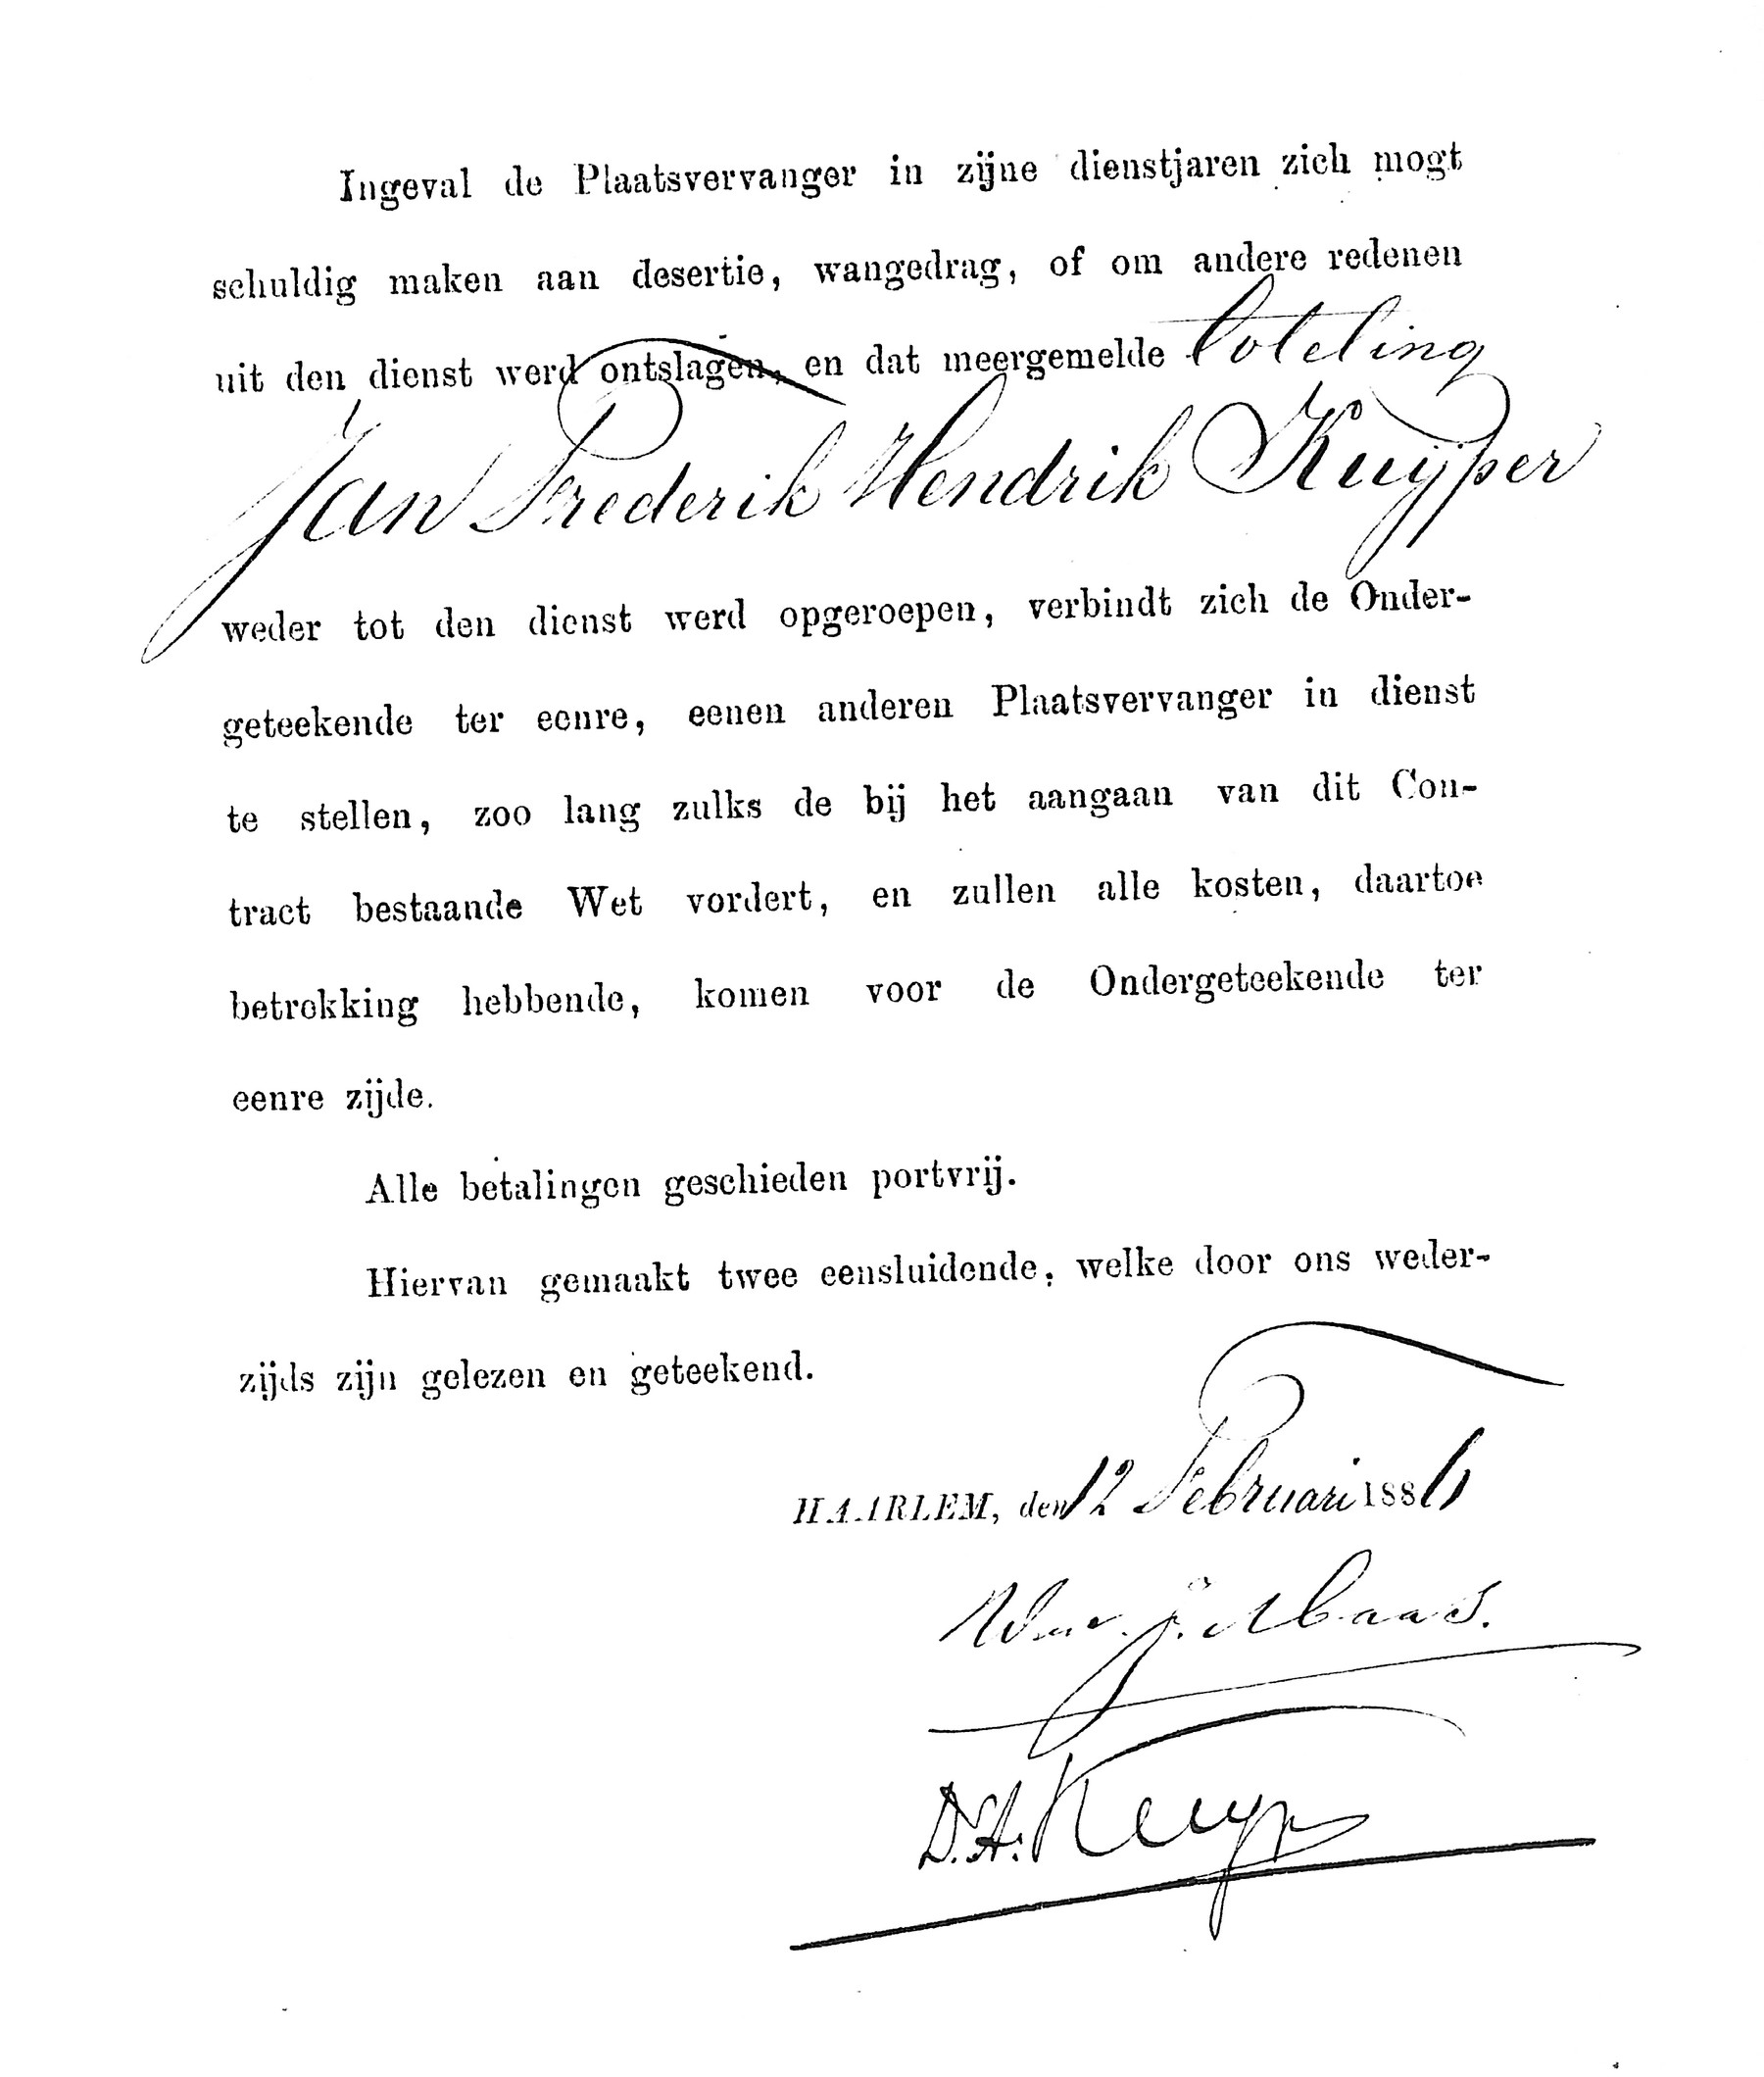 Ingeval de Plaatsvervanger in zijne dienstjaren zich mogt
schuldig maken aan desertie, wangedrag, of om andere redenen
uit den dienst werd ontslagen, en dat meergemelde loteling
Jan Frederik Hendrik Kuyper
weder tot den dienst werd opgeroepen, verbindt zich de Onder-
geteekende ter eenre, eenen anderen Plaatsvervanger in dienst
te stellen, zoo lang zulks de bij het aangaan van dit Con-
tract bestaande Wet vordert, en zullen alle kosten, daartoe
betrekking hebbende, komen voor de Ondergeteekende ter
eenre zijde.
Alle betalingen geschieden portvrij.
Hiervan gemaakt twee eensluidende, welke door ons weder-
zijds zijn gelezen en geteekend.
HAARLEM, den 12 Februari 1886
J. Maas.
D.A. Kuyper